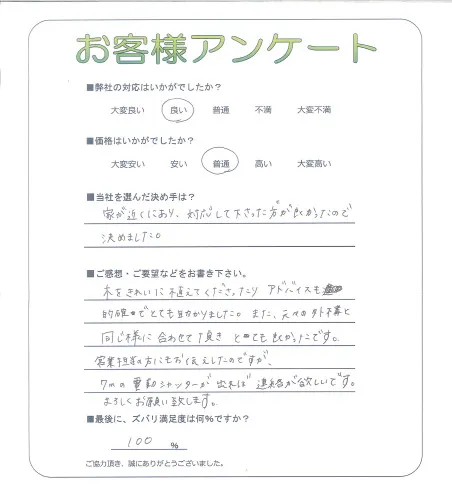 お客様アンケート
■弊社の対応はいかがでしたか？
大変良い 良い 普通 不満 大変不満
■価格はいかがでしたか？
大変安い 安い 普通 高い 大変高い
■当社を選んだ決め手は？
家が近くにあり、対応して下さった方が良かったので
決めました。
■ご感想・ご要望などをお書き下さい。
木をきれいに植えてくださったり アドバイスも
的確でとても助かりました。また、元々の外
同じ様に合わせて頂き とても良かったです。
営業担当の方にもお伝えしたのですが、
7mの電動シャッターが出れば 連絡が欲しいです。
よろしくお願い致します。
■最後に、ズバリ満足度は何%ですか？
100 %
ご協力頂き、誠にありがとうございました。